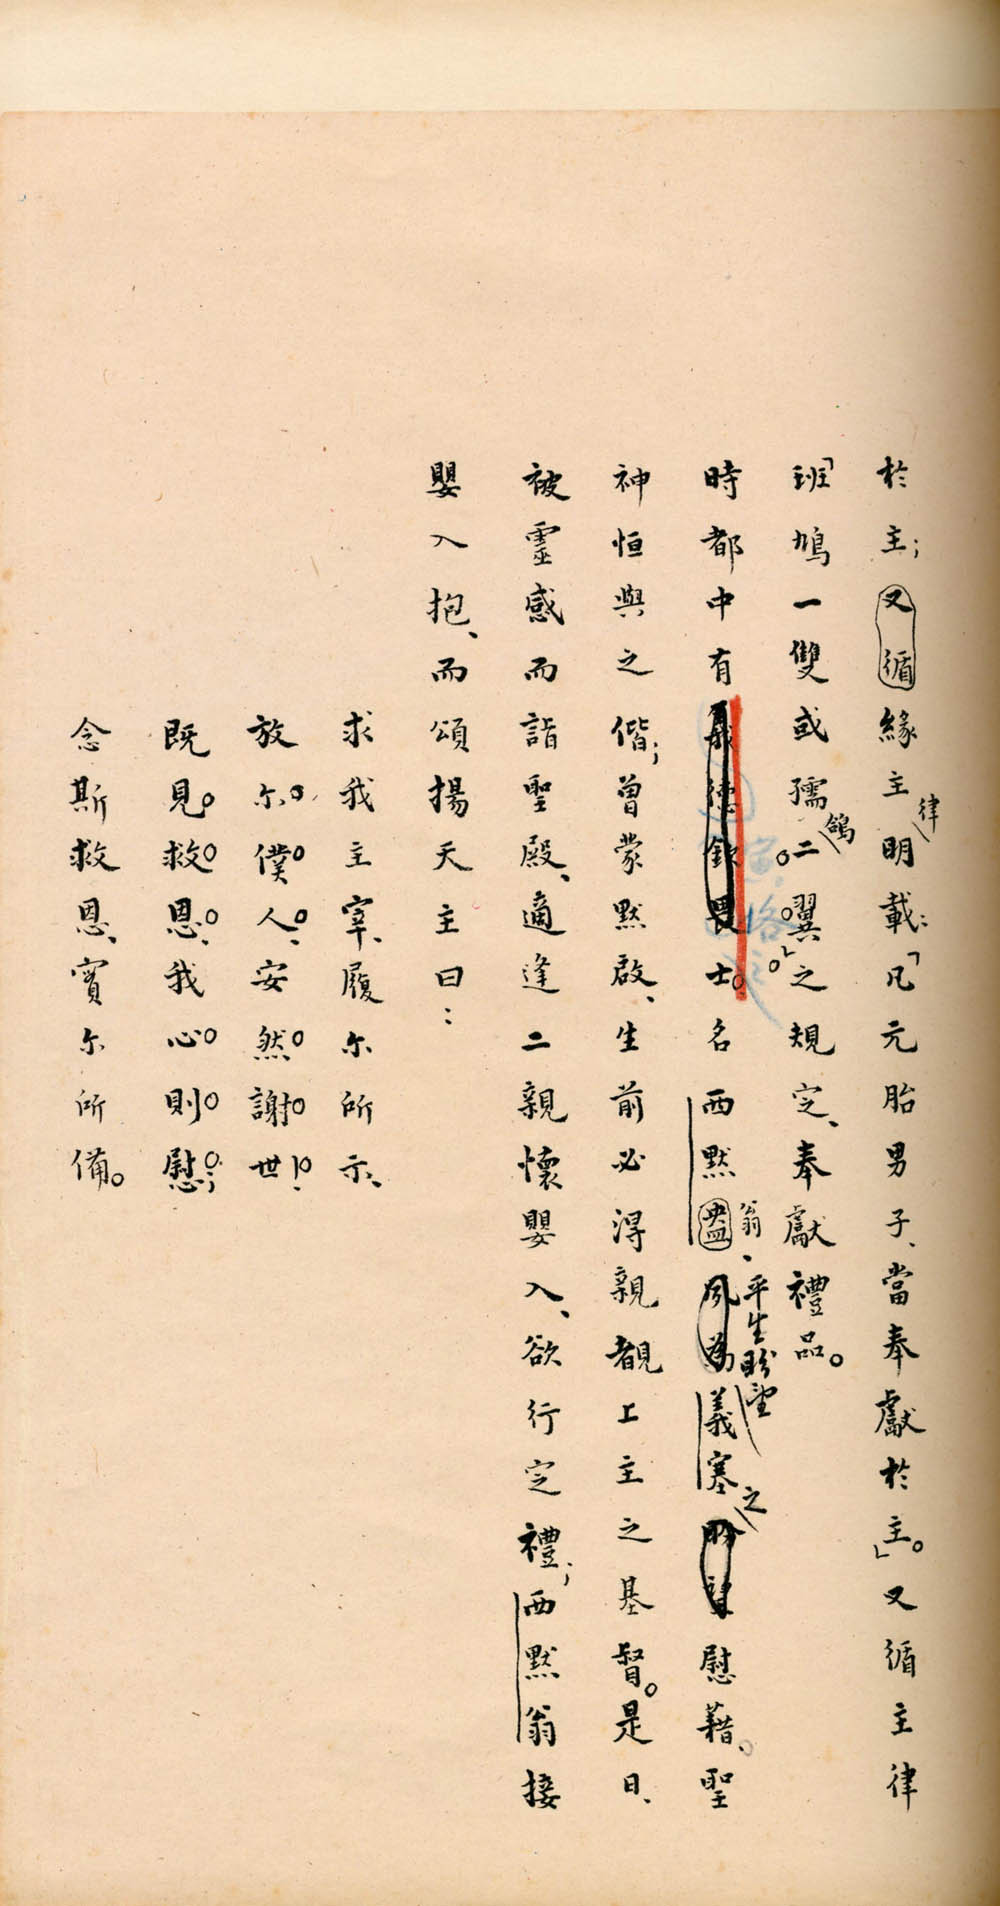 於主；又循緣主律明載：「凡元胎男子、當奉獻於主。」又循主律
「班鳩一雙或孺鴿二翼」之規定、奉獻禮品。
時都中有義德欽畏士。名西默盎翁、夙為平生盼望義塞之盼望慰藉、聖
神恒與之偕；曾蒙默啟、生前必得親覩上主之基督。是日、
被靈感而詣聖殿、適逢二親懷嬰入、欲行定禮；西默翁接
嬰入抱、而頌揚天主曰：
求我主宰、履尔所示、
放尔僕人、安然謝世！
既見救恩、我心則慰；
念斯救恩、實尔所備。